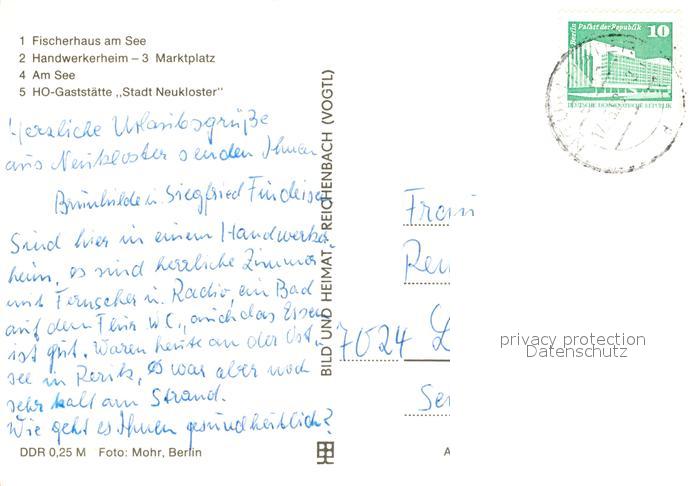 1 Fischerhaus am See
2 Handwerkerheim – 3 Marktplatz
4 Am See
5 HO-Gaststätte „Stadt Neukloster"
Herzliche Urlaubsgrüße
aus Neukloster senden Ihnen
Brünhilde u. Siegfried Findeisen
Sind hier in einem Handwerker-
heim, es sind herrliche Zimmer
mit Fernseher u. Radio, ein Bad
auf dem Flur WC., auch das Essen
ist gut. Waren heute an der Ost-
see in Rerik, es war aber noch
sehr kalt am Strand.
Wie geht es Ihnen gesundheitlich?
DDR 0,25 M Foto: Mohr, Berlin
BILD UND HEIMAT REICHENBACH (VOGTL)
Berlin Palast der Republik
10
DEUTSCHE DEMOKRATISCHE REPUBLIK
Frau
Ren
7024 L
Se
A
privacy protection
Datenschutz